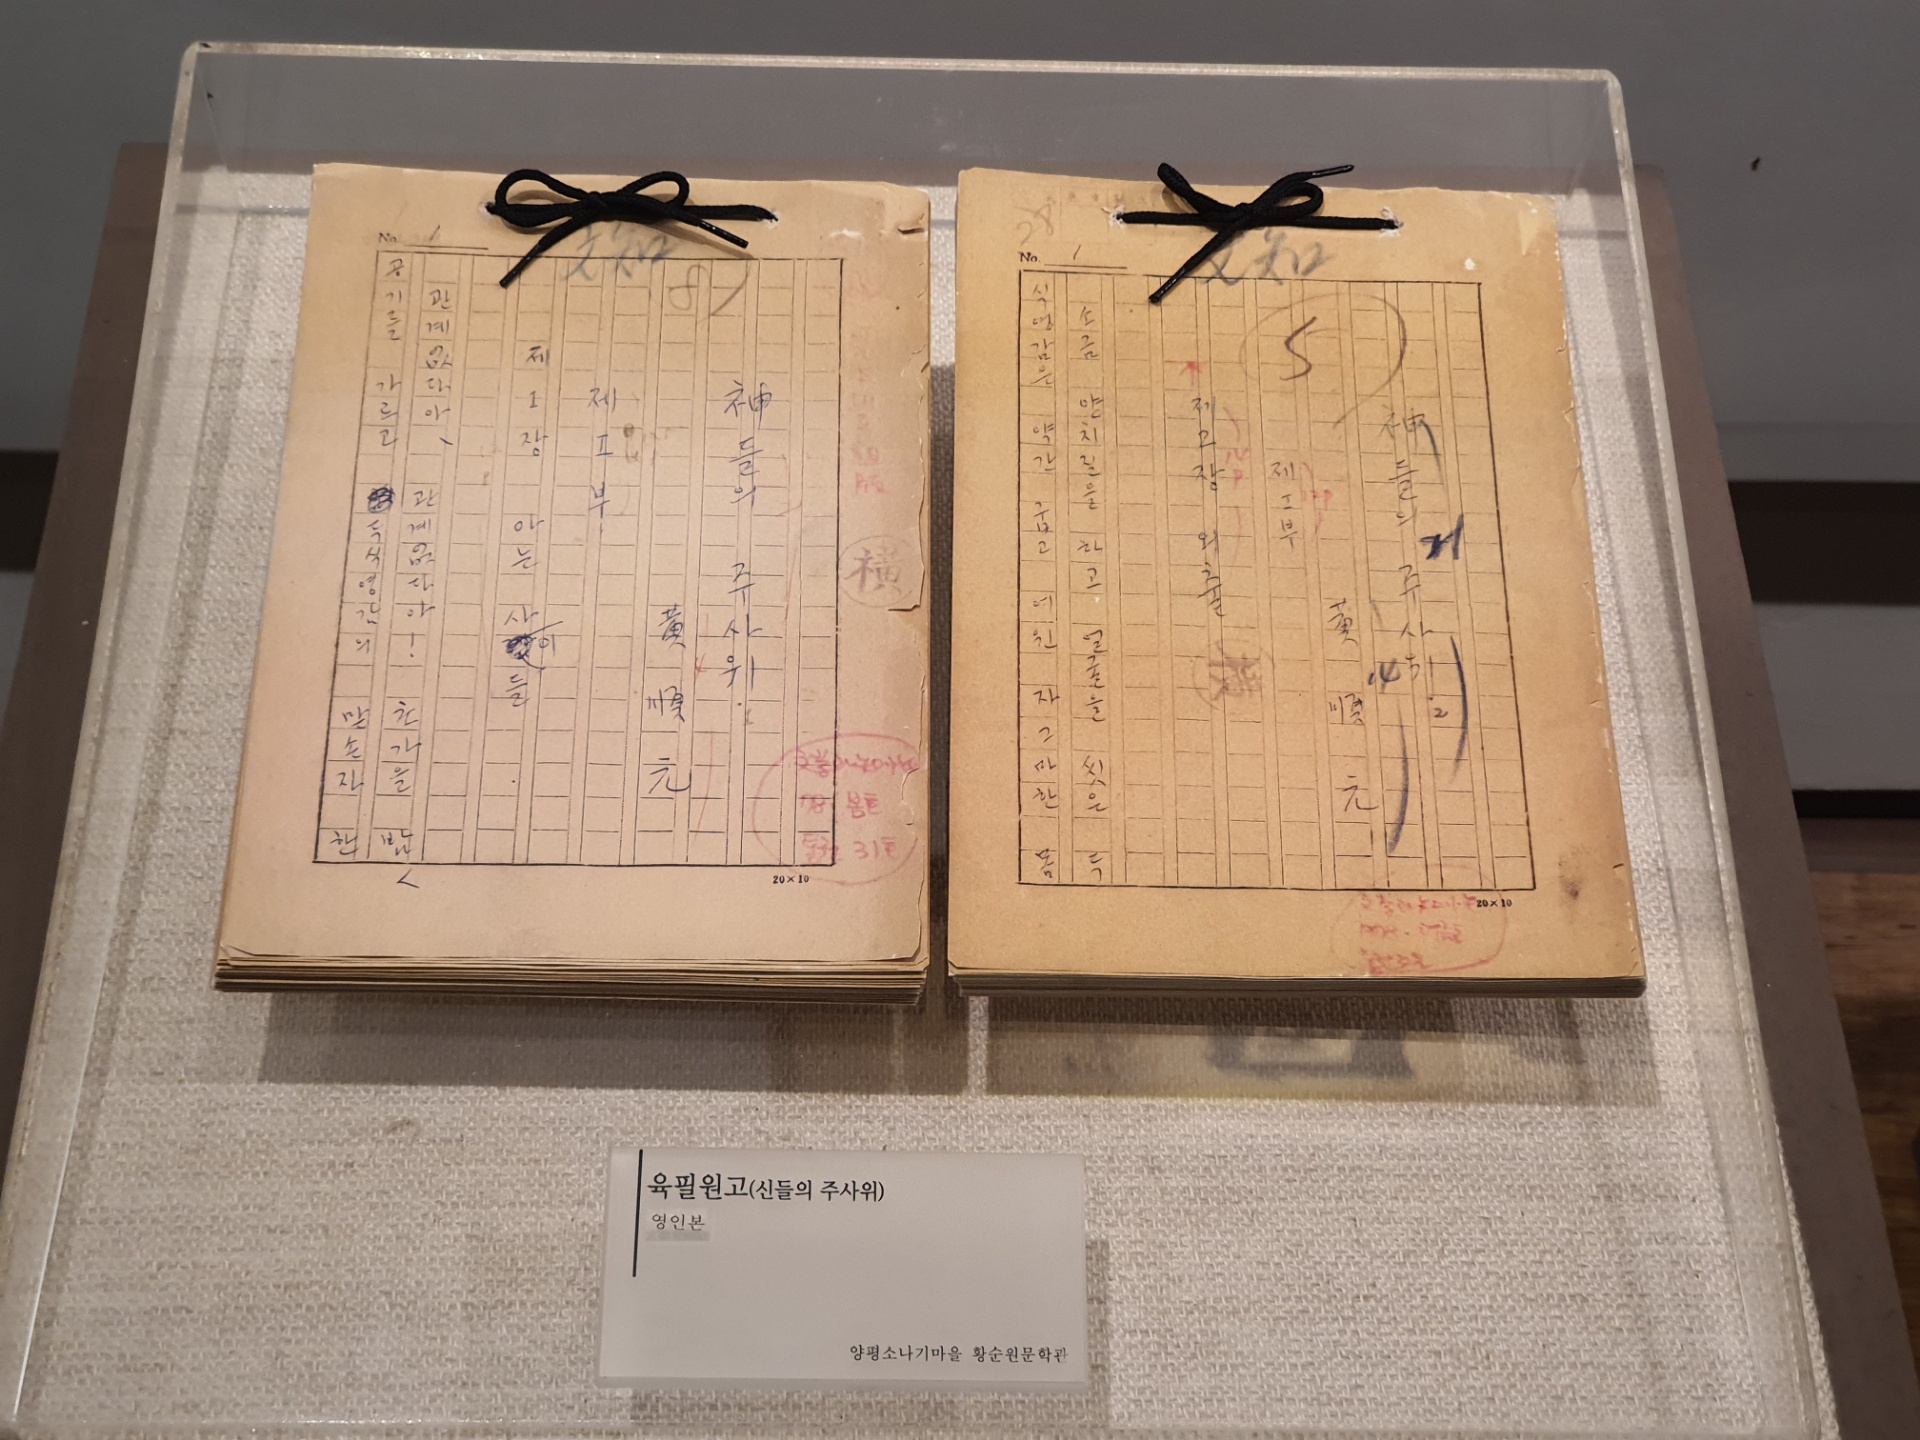 No. 1
文知
8
神들의 주사위·
黃順元
제Ⅰ부
제1장 아는 사이들
관계없다아, 관계없다아! 한가을 밤
공기를 가르고 두식영감의 맏손자 한
橫
20×10
No. 1
文知
5
神들의 주사위·2
黃順元
제Ⅰ부
제2장 외출
소금 양치질을 하고 얼굴을 씻은 두
식영감은 약간 굽고 여윈 자그마한 몸
20×10
육필원고(신들의 주사위)
영인본
양평소나기마을 황순원문학관